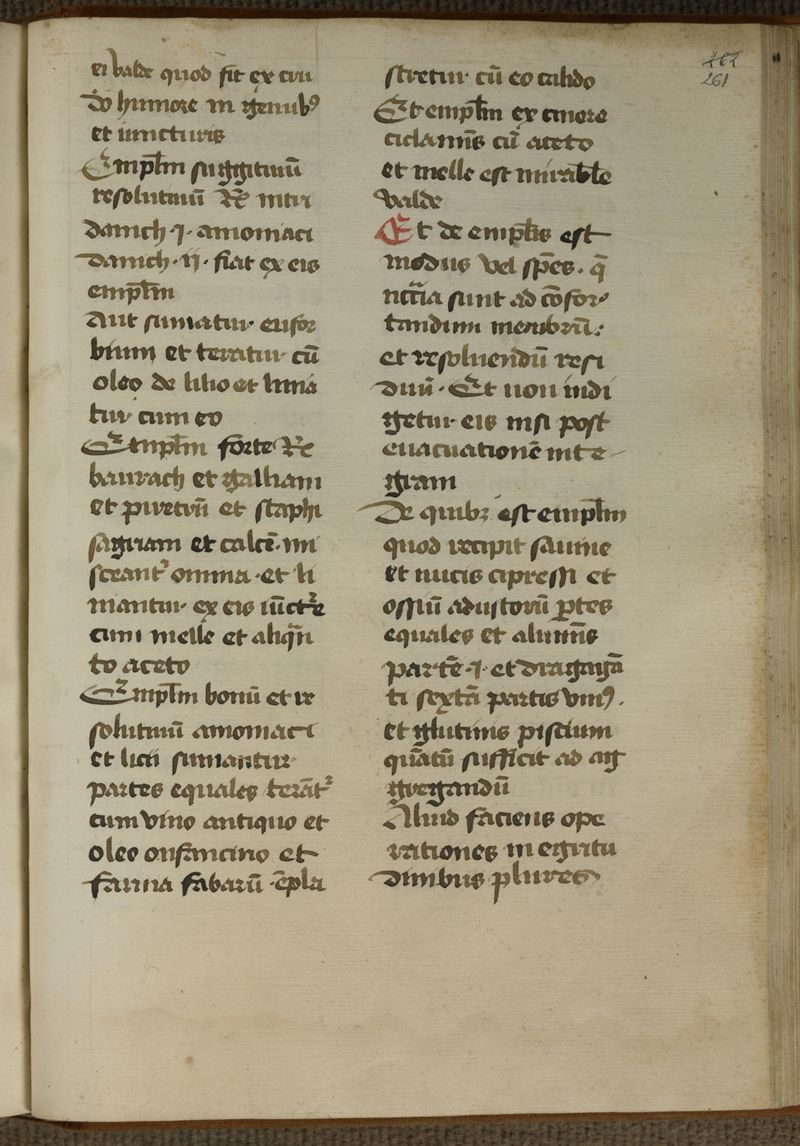 ei valde quod fit ex cru
do humore in genub⁹
et iuncturis
Emplm̄ suggitiuū
resolutiuū R͞e
danich · i · amoniaci
danich · ii · fiat ex eis
emplm̄
Aut sumatur eufor
bium et teratur cū
oleo de lilio et linia
tur cum eo
Emplm̄ forte R͞e
baurach et galbani
et piretrū et staphi
sagriam et calcē · mi
sceant᷑ omnia · et li
niantur ex eis iūct᷑e
cum melle et aliqn̄
to aceto
Emplm̄ bonū et re
solutiuū amoniaci
et licii sumantur
partes equales terāt᷑
cum vino antiquo et
oleo onfancino et
farina fabarū · ēpla
stretur cū eo calido
Et emplm̄ ex cinere
ciclamīs cū aceto
et melle est mirable
valde
Et de emplīs est
modus vel spēs · q̄
nccīa sunt ad cōfor
tandum membrū :
et resoluendū resi
duū · Et non indi
getur eis nisi post
euacuationē inte
gram
De quibꝫ est emplm̄
quod recipit saume
et nucis cipressi et
ossiū adustorū ꝑtes
equales et alumīs
partē · i · et dragagā
ti sextā partis vni⁹ ·
et glutinis piscium
quātū sufficit ad ag
gregandū
Aliud faciens ope
rationes in egritu
dinibus plures
262
261